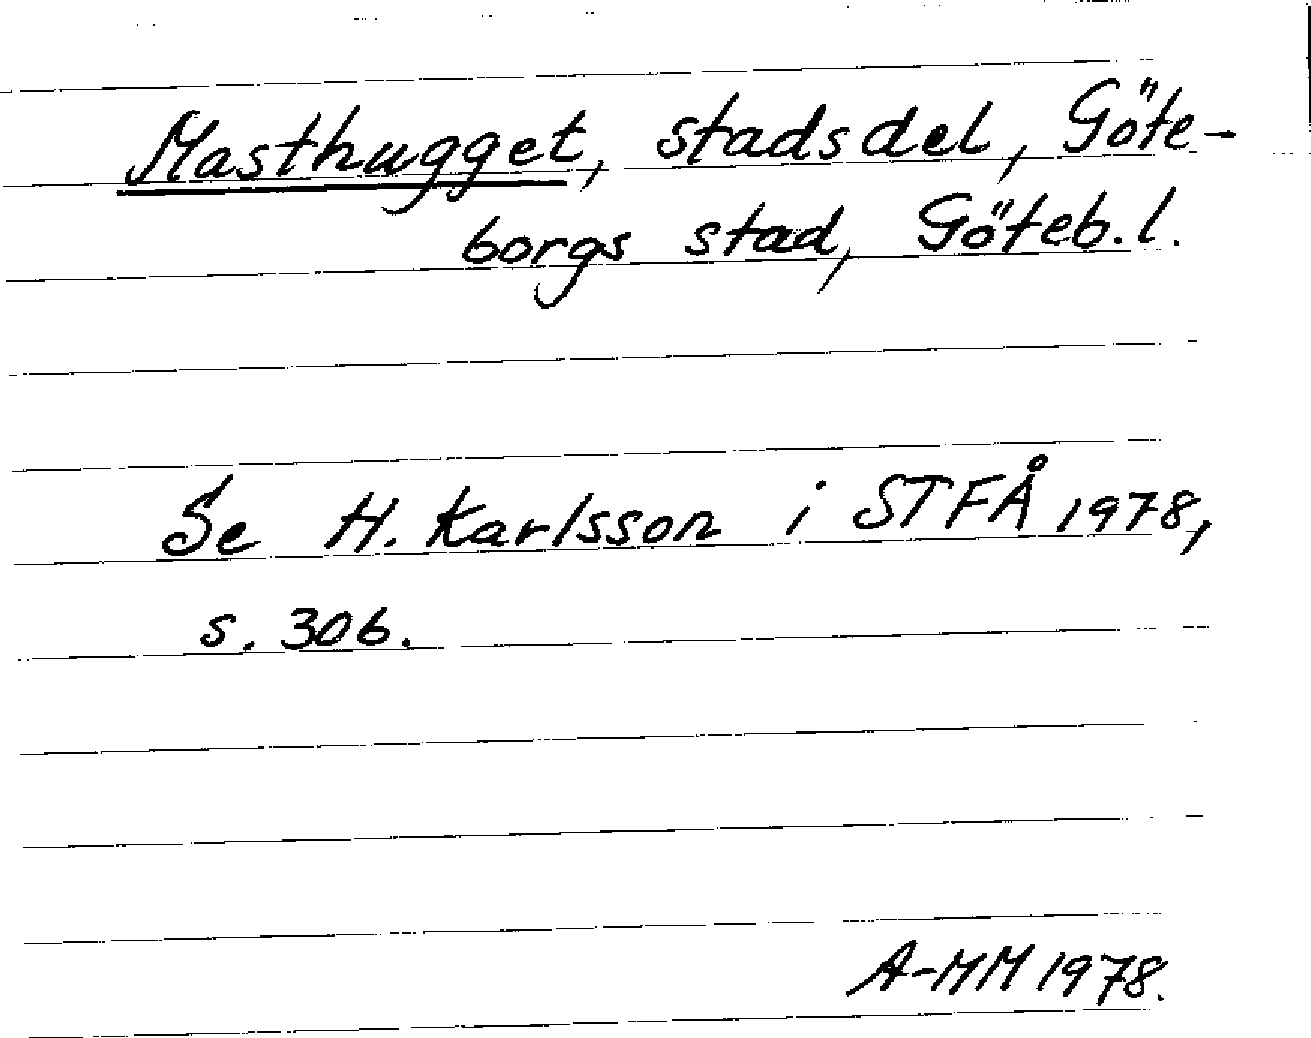 Masthugget, stadsdel, Göte-
borgs stad, Göteb.l.
Se H. Karlsson i STFÅ 1978,
s. 306.
A-MM 1978.